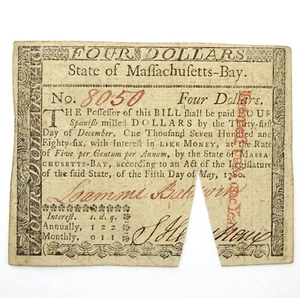 FOUR DOLLARS
State of Massachusetts-Bay.
No. 8050 Four Dollars.
THE Possessor of this BILL shall be paid FOUR
Spanish milled DOLLARS by the Thirty-first
Day of December, One Thousand Seven Hundred and
Eighty-six, with Interest in LIKE MONEY, at the Rate
of Five per Centum per Annum, by the State of MASSA-
CHUSETTS-BAY, according to an ACT of the Legislature
of the said State, of the Fifth Day of May, 1780.
Interest. s. d. q.
Annually, 1 2 2
Monthly, 0 1 1
FOUR DOLLARS